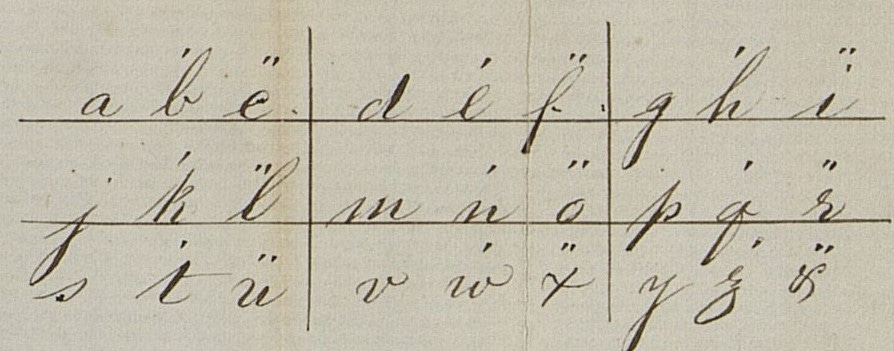 a b́ c̈ d é f̈ g h́ ï
j ḱ l̈ m ń ö p q́ r̈
s t́ ü v ẃ ẍ y ź &̈